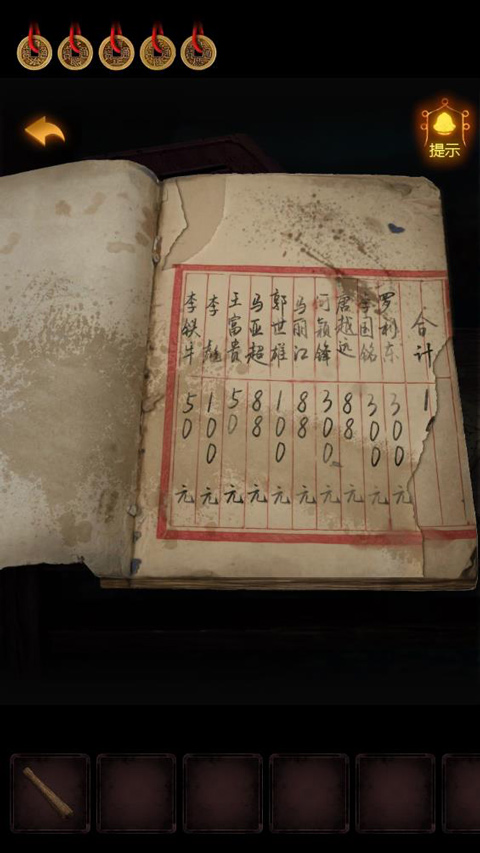 提示
李铁牛 50元
李彪 100元
王富贵 50元
马亚超 88元
郭世雄 100元
马丽江 88元
何颖锋 300元
越远 88元
国铭 300元
罗利东 300元
合计 1